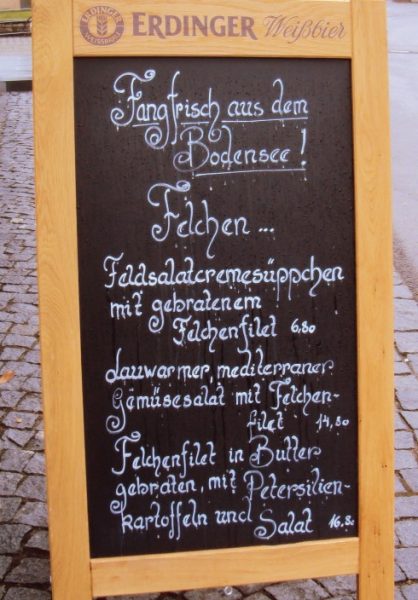 ERDINGER
WEISSBRÄU
ERDINGER Weißbier
Fangfrisch aus dem
Bodensee!
Felchen...
Feldsalatcremesüppchen
mit gebratenem
Felchenfilet 6,80
lauwarmer mediterraner
Gemüsesalat mit Felchen-
filet 14,80
Felchenfilet in Butter
gebraten, mit Petersilien-
kartoffeln und Salat 16,80